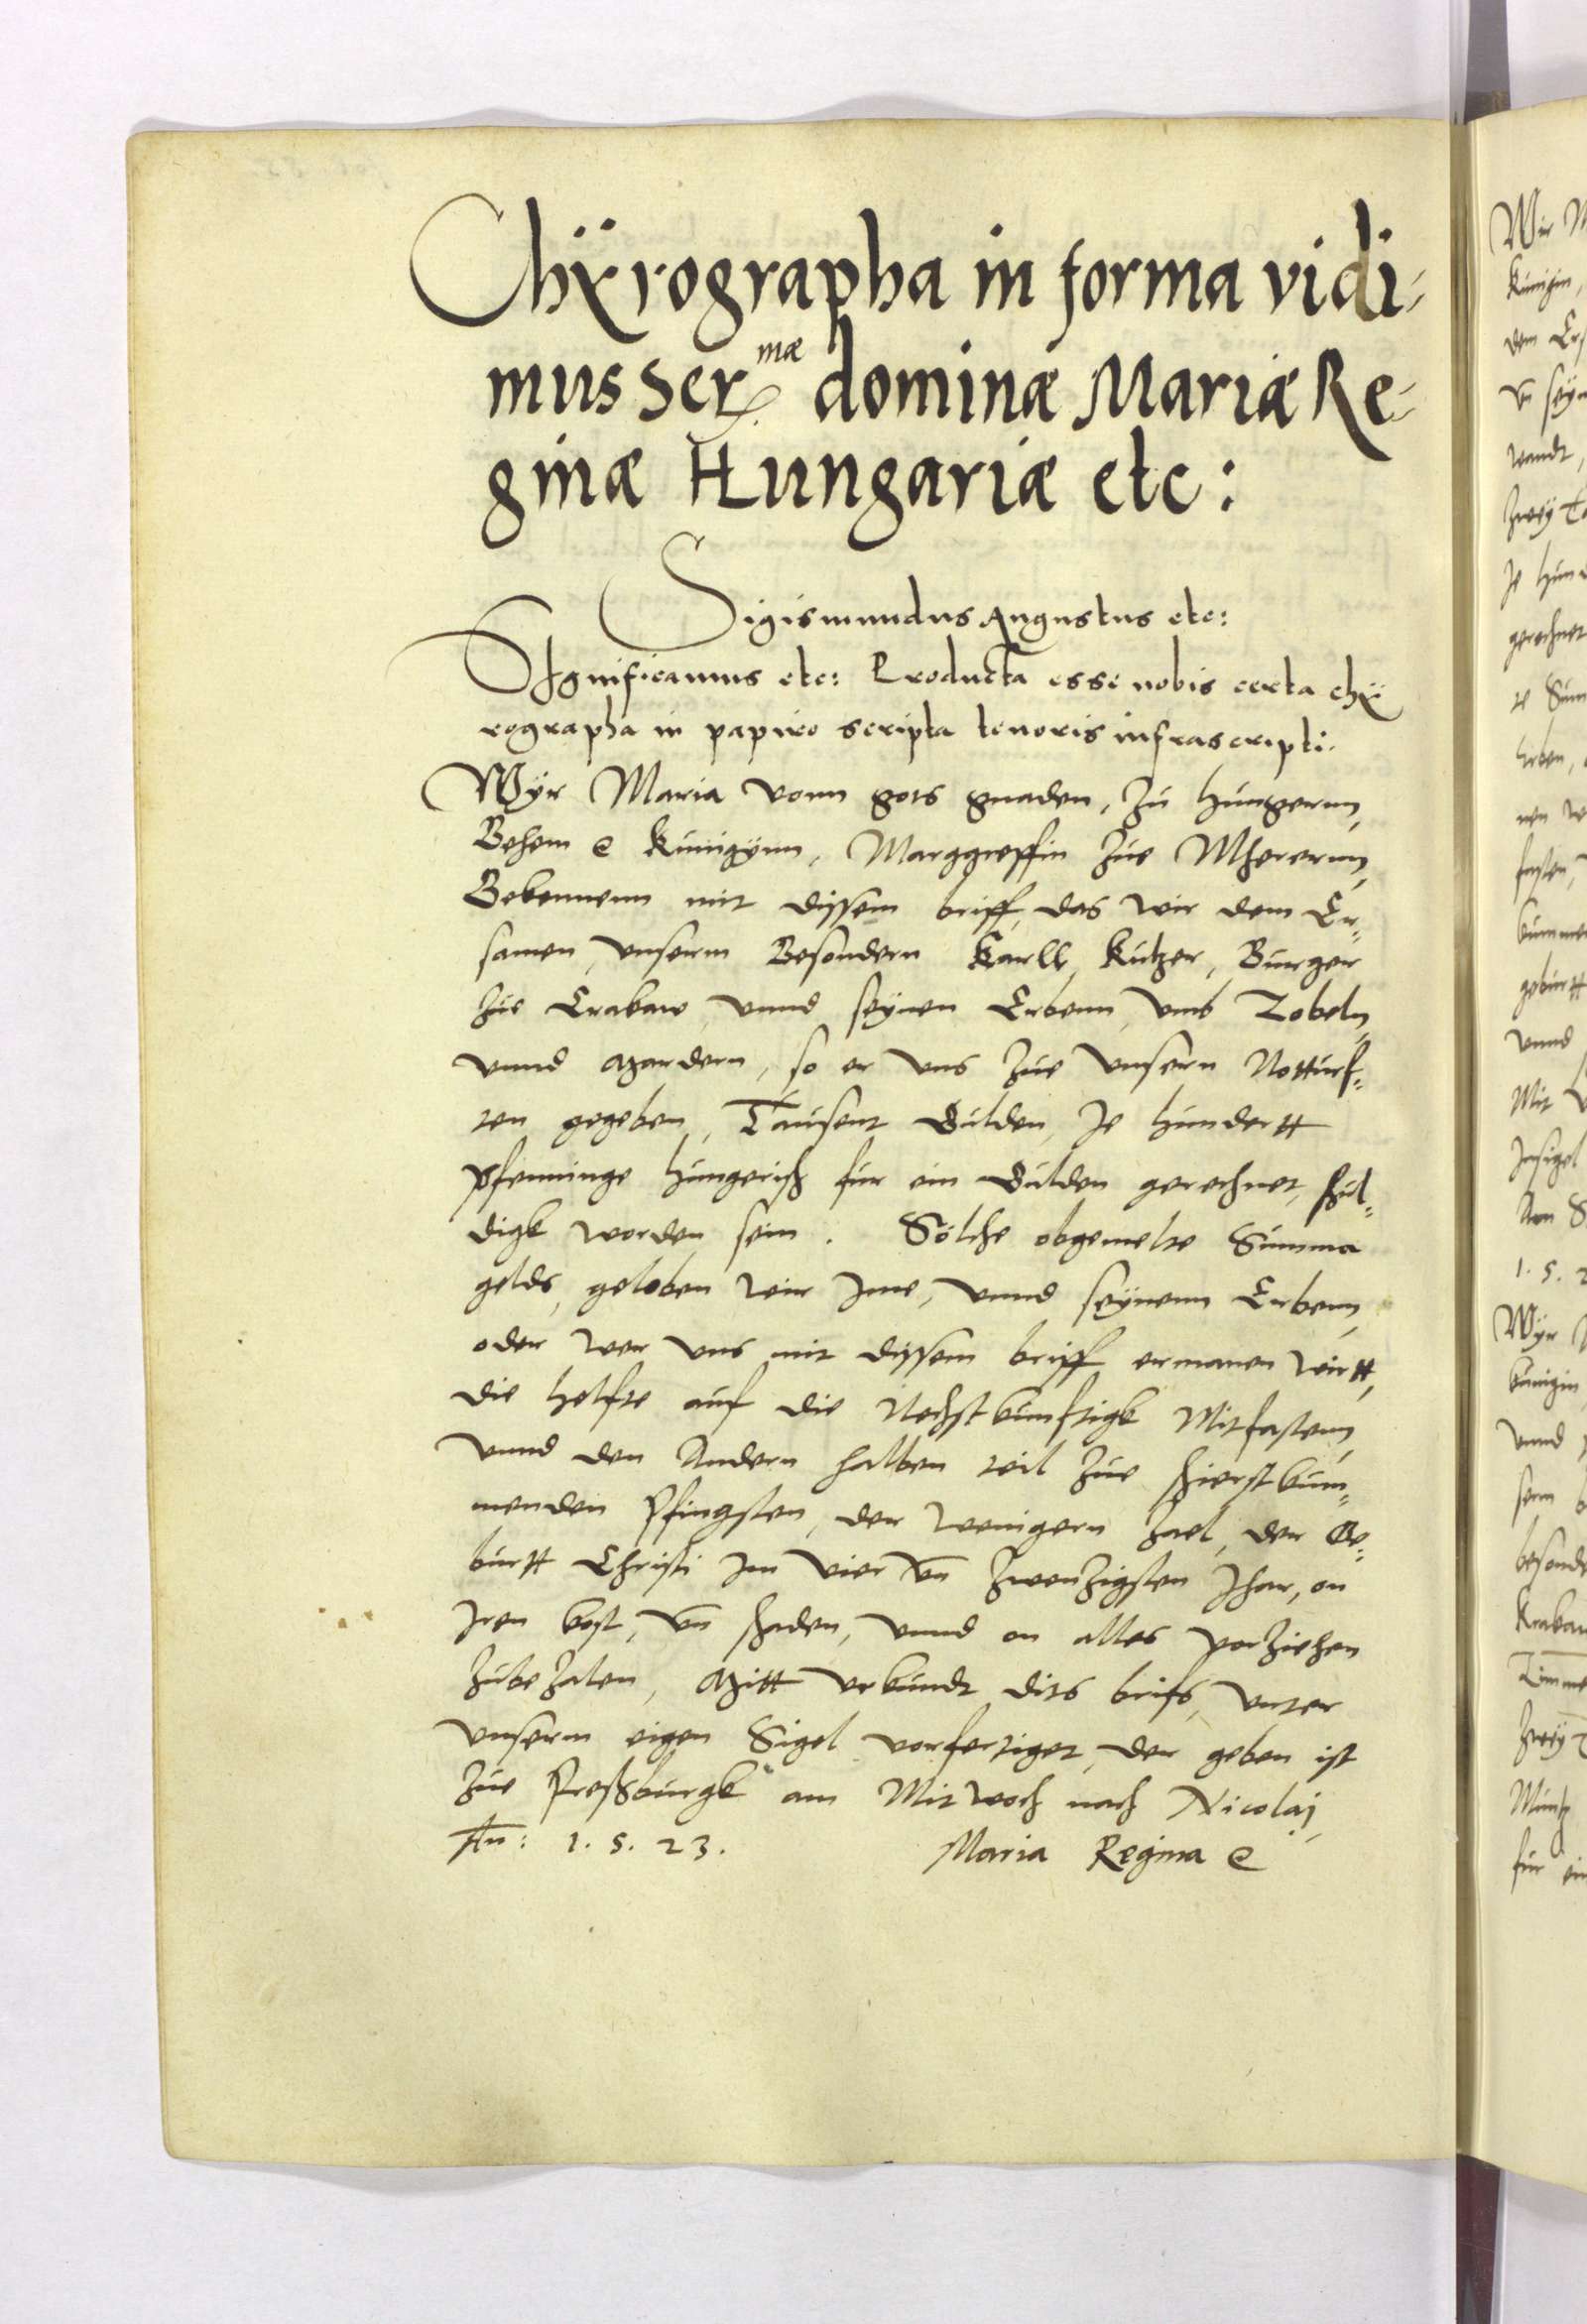 Chÿrographa in forma vidi-
mus Ser.mæ dominæ Mariæ Re-
ginæ Hungariæ etc:
Sigismundus Augustus etc:
SIgnificamus etc: Producta esse nobis certa chÿ
rographa in papiro scripta tenoris infrascripti.
Wÿr Maria vonn gots gnaden, zu Hungernn,
Behem etc Kunigÿnn, Marggreffin zue Mherernn,
Bekennenn mit dissem briff, das wir dem Er-
samen, unserm Besondern Karll Kutzer, Burger
zue Crakaw, vnnd seÿnen Erbenn, vmb Zobeln,
vnnd Mardern, so er vns zue vnsern Notturf-
ten gegeben, Tausent Gulden, Je Hundertt
pfenninge Hungerisch fur ein Gulden gerechnet, schul-
digk worden sein. Sölche obgemelte Summa
gelds, geloben wir Jme, vnnd seÿnenn Erbenn,
oder wer vns mit dissem briff ermanen wirtt,
die Helfte auf die Nechstkunftigk Mitfastenn,
vnnd den Andern halben teil zue schierstkum-
menden Pfingsten, der wenigern zael, der Ge-
burtt Christi Im vier vn zwenzigsten Jhar, on
Jren kost, vn schaden, vnnd on alles vorziehen
zubezalen, Mitt vrkundt dits brifs, vnter
vnserm eigen Sigel vorfertiget, der geben ist
zue Presburgk am Mitwoch nach Nicolaj,
An: 1. 5. 23. Maria Regina etc
Wir M
Kunigin,
dem Ers
vn seÿn
wandt,
zweÿ Ta
Je Hund
gerechnet
te Sum
Erben,
nen w
fasten,
kumme
geburtt
vnnd
Mit V
Insigel
Am S
1. 5. 2
Wÿr M
kunigin
vnnd
serm b
besonde
Kraka
Zimme
zweÿ T
Müntz
für ein